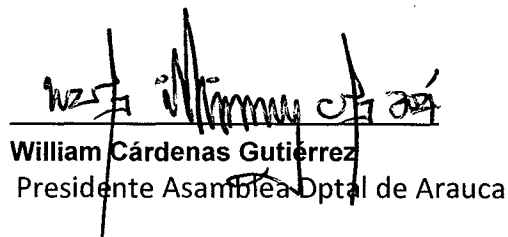 William Cárdenas Gutiérrez
Presidente Asamblea Dptal de Arauca